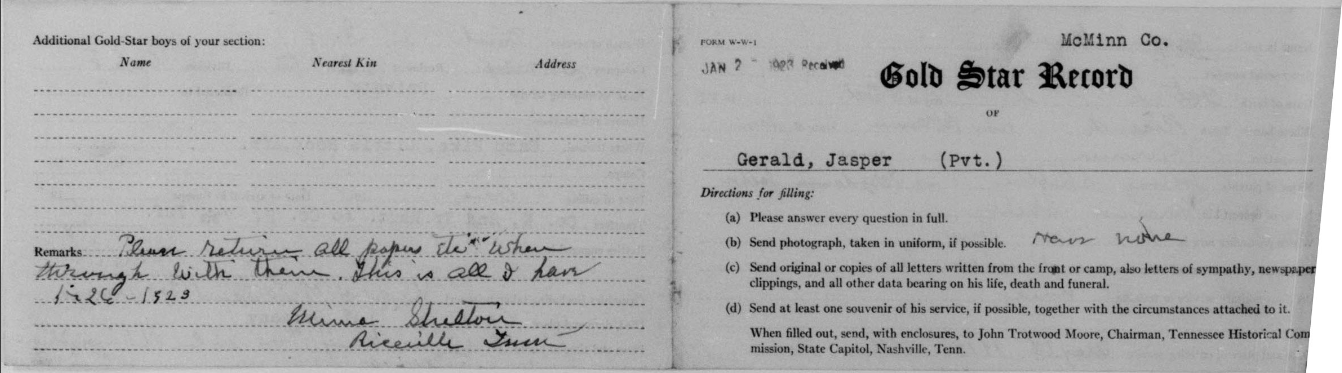 Additional Gold-Star boys of your section:
Name Nearest Kin Address
Remarks Please return all papers etc when
through with them. This is all I have
1-26-1923
Shelton
Riceville Tenn
FORM W-W-1
McMinn Co.
JAN 2 1923 Received
Gold Star Record
OF
Gerald, Jasper (Pvt.)
Directions for filling:
(a) Please answer every question in full.
(b) Send photograph, taken in uniform, if possible. Have none
(c) Send original or copies of all letters written from the front or camp, also letters of sympathy, newspaper
clippings, and all other data bearing on his life, death and funeral.
(d) Send at least one souvenir of his service, if possible, together with the circumstances attached to it.
When filled out, send, with enclosures, to John Trotwood Moore, Chairman, Tennessee Historical Com
mission, State Capitol, Nashville, Tenn.